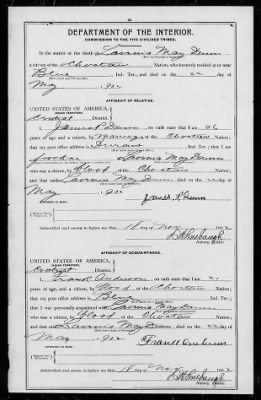 DEPARTMENT OF THE INTERIOR.
COMMISSION TO THE FIVE CIVILIZED TRIBES.
In the matter of the death of Lavinia May Dunn
a citizen of the Choctaw Nation, who formerly resided at or near
Blue, Ind. Ter., and died on the 22 day of
May, 1902
AFFIDAVIT OF RELATIVE.
UNITED STATES OF AMERICA
INDIAN TERRITORY,
Central District.
I, James P Dunn, on oath state that I am 26
years of age and a citizen, by Marriage, of the Choctaw Nation;
that my post office address is Durant, Ind. Ter.; that I am
father of Lavinia May Dunn
who was a citizen, by blood, of the Choctaw Nation;
and that said Lavinia May Dunn died on the 22 day of
May, 1902
James P Dunn
Subscribed and sworn to before me this 18 day of Nov 1902
Notary Public.
AFFIDAVIT OF ACQUAINTANCE.
UNITED STATES OF AMERICA
INDIAN TERRITORY,
Central District.
I, Frank, on oath state that I am 21
years of age, and a citizen by blood of the Choctaw Nation;
that my post office address is Blue, Ind. Ter.;
that I was personally acquainted with
who was a citizen, by blood, of the Choctaw Nation;
and that said Lavinia May Dunn died on the 22 day of
May, 1902
Subscribed and sworn to before me this 18 day of Nov 1902
Notary Public.